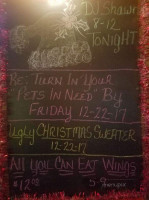 DJ Shawn
8-12
TONIGHT
Re: Turn In Your
"Pets In Need" By
Friday 12-22-17
Ugly Christmas Sweater
12-22-17
All You Can Eat Wings
$12.00